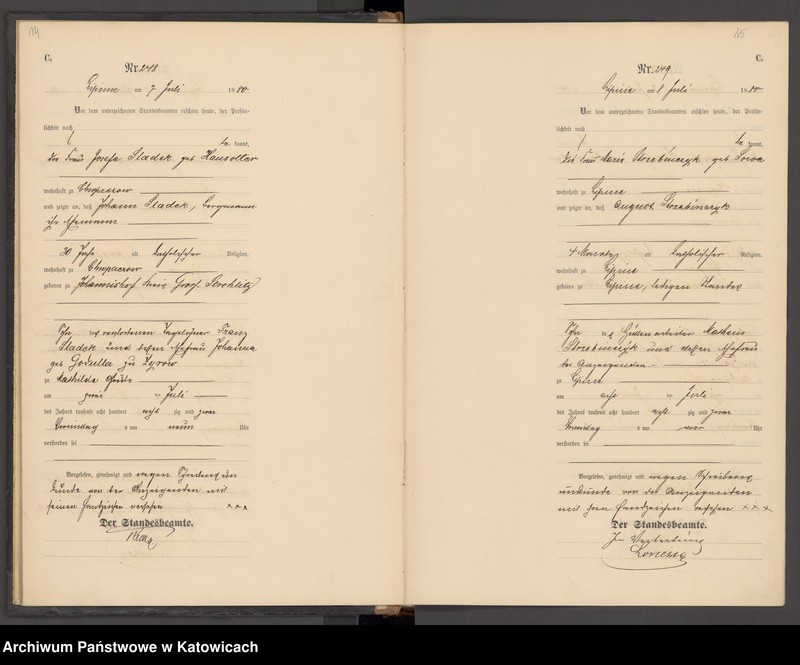 114
C.
Nr. 248
Lipine am 7 Juli 1880
Vor dem unterzeichneten Standesbeamten erschien heute, der Persön-
lichkeit nach
kannt,
die Frau Josefa Sladek geb. Hausotter
wohnhaft zu Chropaczow
und zeigte an, daß Johann Sladek, Bergmann
ihr Ehemann
30 Jahr alt katholischer Religion,
wohnhaft zu Chropaczow
geboren zu Johannishof Kreis Groß Strehlitz
Sohn des verstorbenen Tagelöhner Franz
Sladek und dessen Ehefrau Johanna
geb Godulla zu
zu Mathilde Grube
am zwei ten Juli
des Jahres tausend acht hundert acht zig und
Vormittag s um neun Uhr
verstorben sei
Vorgelesen, genehmigt und wegen Schreibens un
kunde von der Anzeigenden mit
Handzeichen versehen xxx
Der Standesbeamte.
15
C.
Nr. 249
Lipine am 8 Juli 1880
Vor dem unterzeichneten Standesbeamten erschien heute, der Persön-
lichkeit nach
kannt,
die Frau Marie geb
wohnhaft zu Lipine
und zeigte an, daß August
4 Monate alt katholischer Religion,
wohnhaft zu Lipine
geboren zu Lipine, ledigen Standes
Sohn des Hüttenarbeiter Matheus
und dessen Ehefrau
der Anzeigenden
zu Lipine
am acht ten Juli
des Jahres tausend acht hundert acht zig und
Vormittag s um vier Uhr
verstorben sei
Vorgelesen, genehmigt und wegen Schreibens
unkunde von der Anzeigenden
mit Handzeichen versehen xxx
Der Standesbeamte.
In Vertretung
Archiwum Państwowe w Katowicach